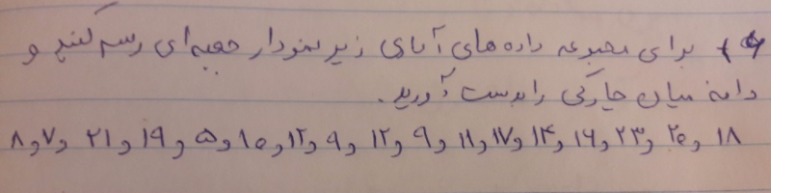 ۶) برای مجموعه داده های آماری زیر نمودار جعبه ای رسم کنید و
دامنه میان چارکی را بدست آورید.
۱۸ و ۲۰ و ۲۳ و ۱۶ و ۱۴ و ۱۷ و ۱۱ و ۹ و ۱۲ و ۹ و ۱۲ و ۱۰ و ۵ و ۱۹ و ۲۱ و ۷ و ۸